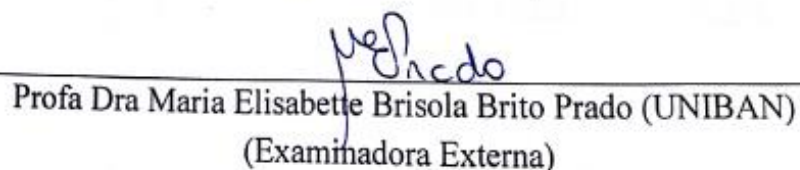 MEPrado
Profa Dra Maria Elisabette Brisola Brito Prado (UNIBAN)
(Examinadora Externa)